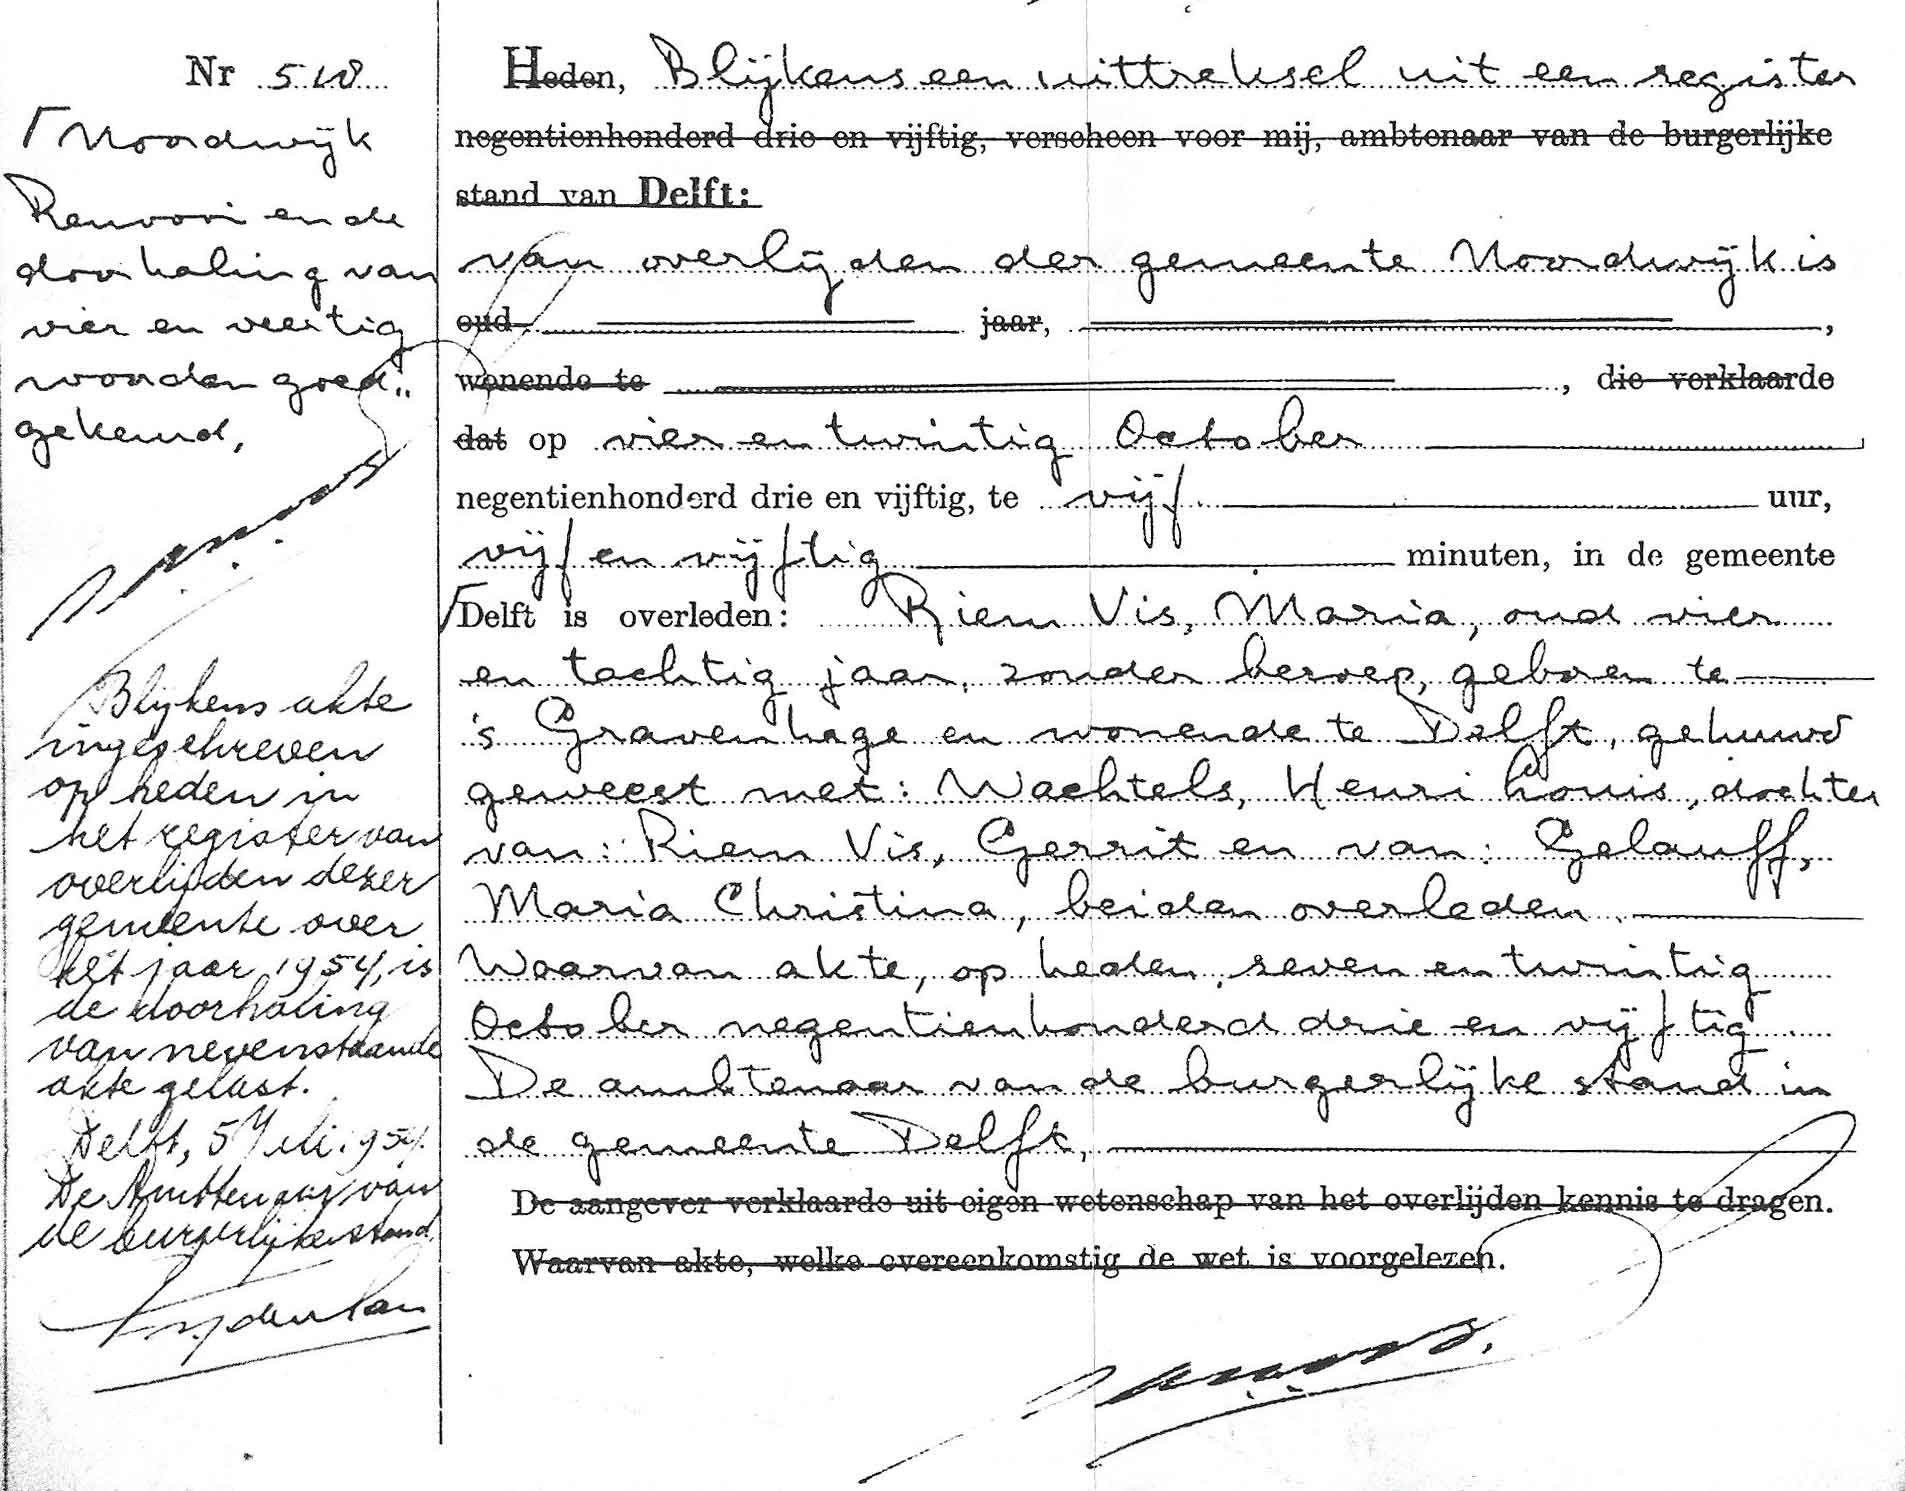 Nr 510
Noordwijk
Renvooi en de
doorhaling van
vier en veertig
woorden goed„
gekeurd,
Blijkens akte
ingeschreven
op heden in
het register van
overlijden dezer
gemeente over
het jaar 1954, is
de doorhaling
van nevenstaande
akte gelast.
Delft, 5 Juli 1954.
De Ambtenaar van
de burgerlijke stand,
Heden, Blijkens een uittreksel uit een register
negentienhonderd drie en vijftig, verscheen voor mij, ambtenaar van de burgerlijke
stand van Delft:
van overlijden der gemeente Noordwijk is
oud jaar, ,
wonende te , die verklaarde
dat op vier en twintig October
negentienhonderd drie en vijftig, te vijf uur,
vijf en vijftig minuten, in de gemeente
Delft is overleden: Riem Vis, Maria, oud vier
en tachtig jaar, zonder beroep, geboren te
's Gravenhage en wonende te Delft, gehuwd
geweest met: Wachtels, Henri Louis, dochter
van: Riem Vis, Gerrit en van: Gelauff,
Maria Christina, beiden overleden.
Waarvan akte, op heden, zeven en twintig
October negentienhonderd drie en vijftig.
De ambtenaar van de burgerlijke stand in
de gemeente Delft,
De aangever verklaarde uit eigen wetenschap van het overlijden kennis te dragen.
Waarvan akte, welke overeenkomstig de wet is voorgelezen.